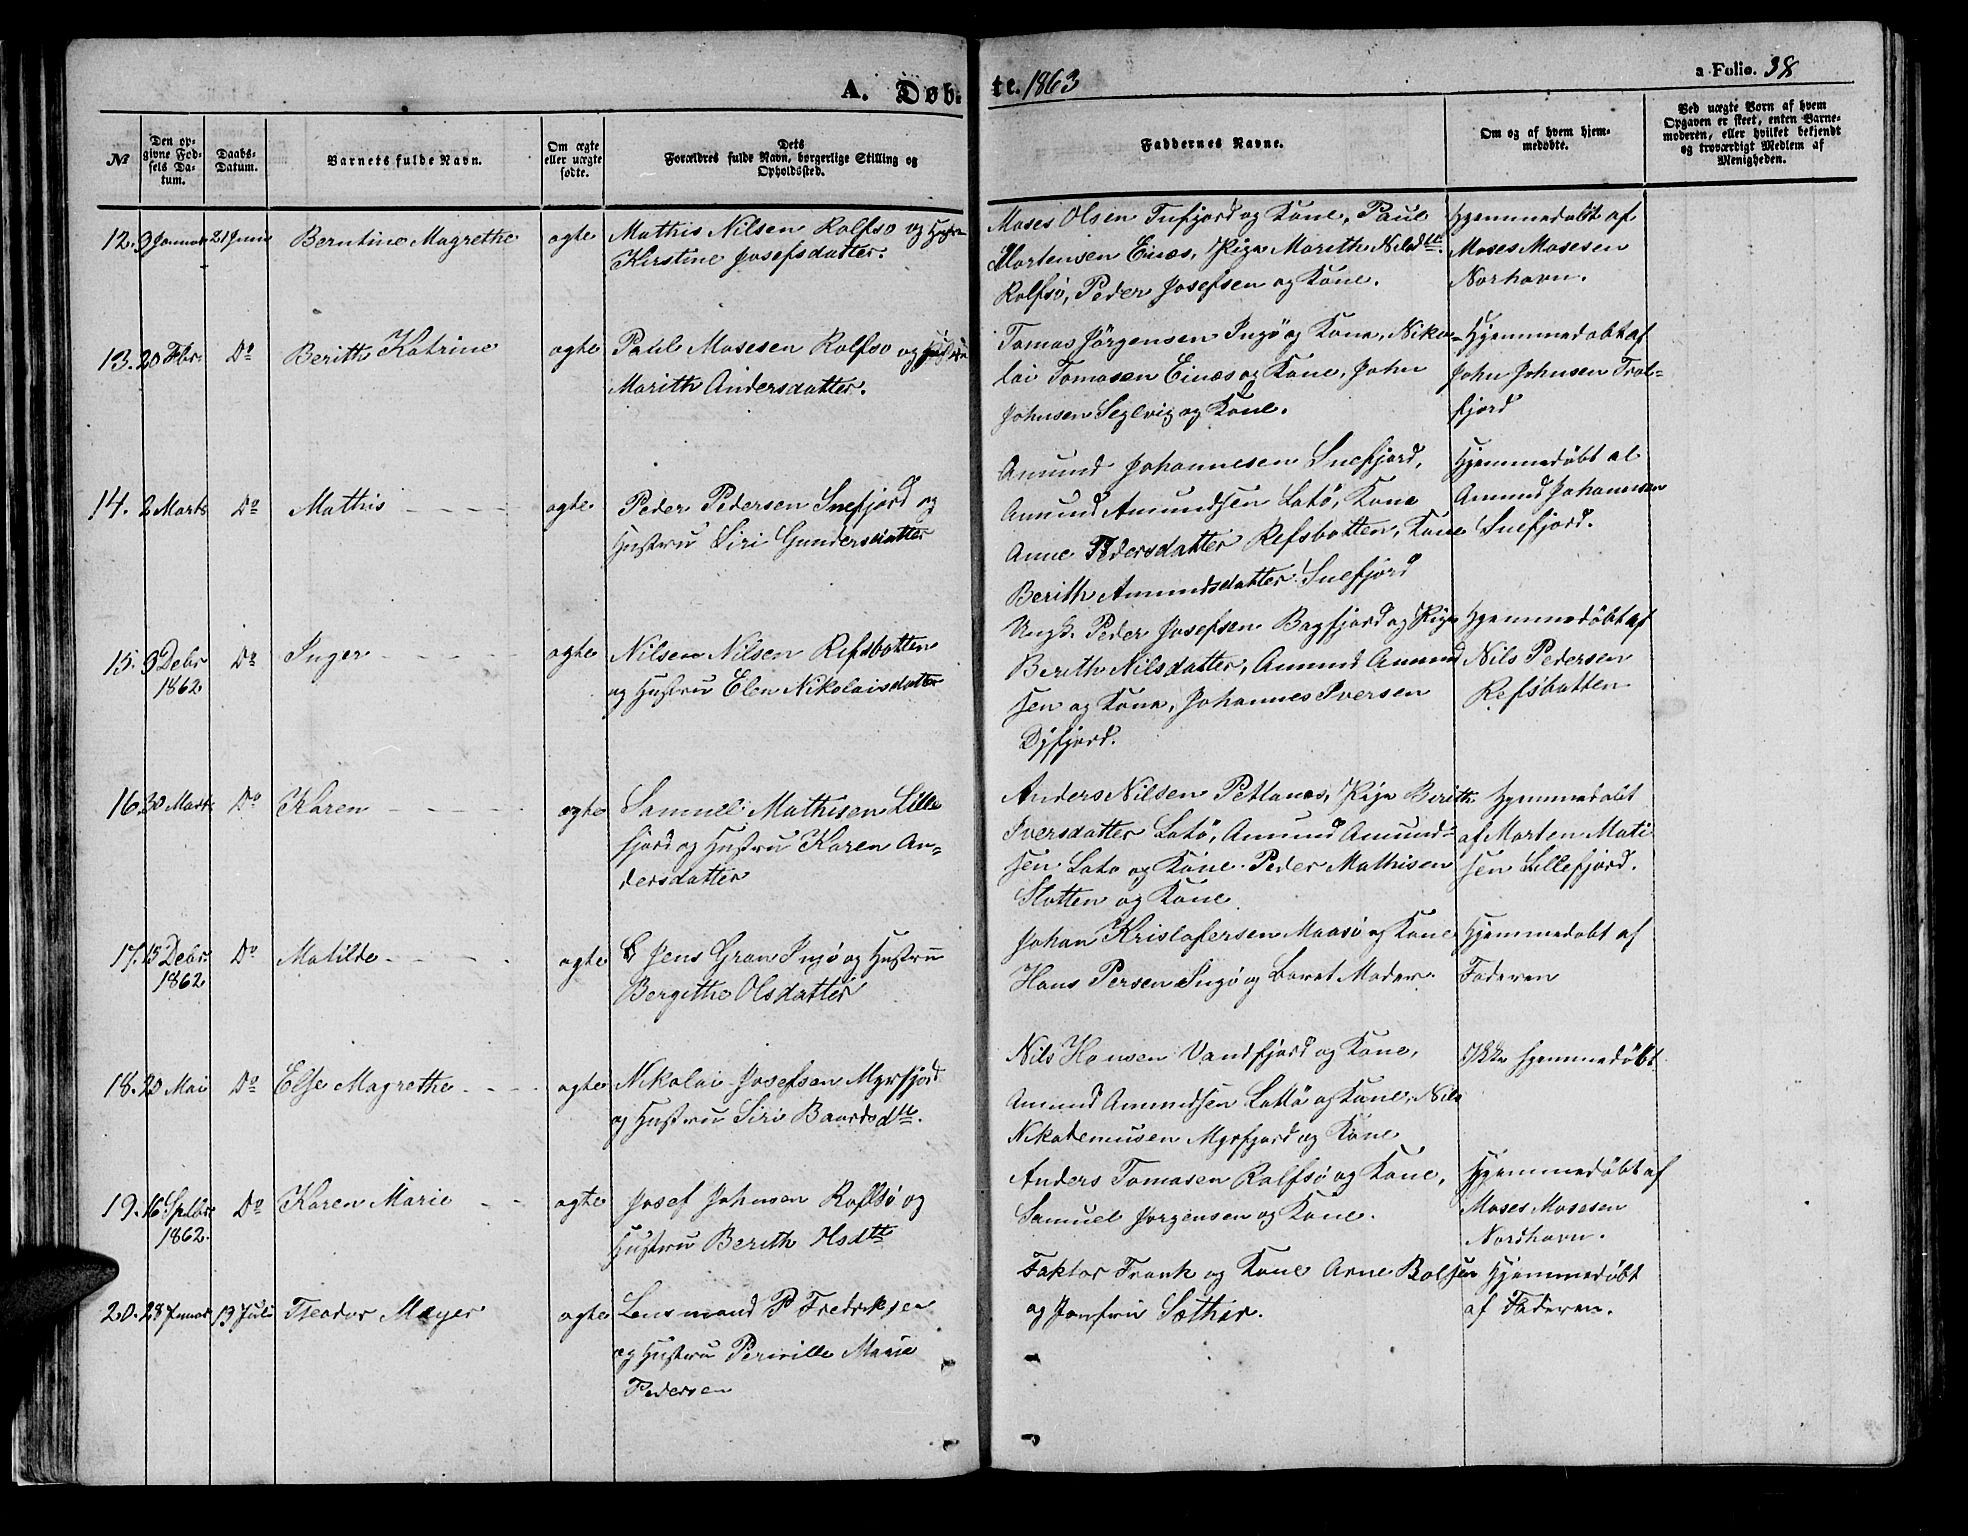 A. Døb-
te. 1863
a Folio. 38
№
Den op-
givne Fød-
sels Da-
tum.
Daabs-
Datum.
Barnets fulde Navn.
Om ægte
eller uægte
fødte.
Dets
Forældres fulde Navn, borgerlige Stilling og
Opholdssted.
Faddernes Navne.
Om og af hvem hjem-
medøbte.
Ved uægte Børn af hvem
Opgaven er skeet, enten Barne-
moderen, eller hvilket bekjendt
og troværdigt Medlem af
Menigheden.
12. 9 Januar 21 Juni Berntine Magrethe ægte
Mathis Nilsen Rolfsø og Hustru
Kirstine Josefsdatter.
Moses Olsen Tufjord og Kone, Paul
Mortensen Einæs, Pige Marith Nilsdtr.
Rolfsø, Peder Josefsen og Kone.
Hjemmedøbt af
Moses Mosesen
Norhavn.
13. 20 Fbr. Do Berith Katrine ægte
Paul Mosesen Rolfsø og Hustru
Marith Andersdatter.
Tomas Jörgensen Ingö og Kone, Niko-
lai Tomasen Einæs og Kone, John
Johnsen Seglvig og Kone.
Hjemmedøbt af
John Johnsen Trol-
fjord
14. 2 Marts Do Mathis ægte
Peder Pedersen Snefjord og
Hustru Siri Gundersdatter
Amund Johannesen Snefjord,
Amund Amundsen Latö, Kone
Anne Pedersdatter Refsbotten, Kone
Berith Amundsdatter Snefjord
Hjemmedöbt af
Amund Johannesen
Snefjord.
15. 9 Debr Do Inger ægte
1862
Nilsen Nilsen Refsbotten
og Hustru Elen Nikolaisdatter
Ungk. Peder Josefsen Bagfjord og Pige
Berith Nilsdatter, Amund Amund
sen og Kone, Johannes Iversen
Dyfjord.
Hjemmedöbt af
Nils Pedersen
Refsbotten
16. 30 Marts Do Karen ægte
Samuel Mathisen Lille
fjord og Hustru Karen An-
dersdatter
Anders Nilsen Petlanæs, Pige Berith
Iversdatter Latö, Amund Amund-
sen Lato og Kone. Peder Mathisen
Slotten og Kone
Hjemmedøbt
af Morten Mati
sen Lillefjord.
17. 15 Debr Do Matilde ægte
1862
Jens Gran Ingø og Hustru
Bergithe Olsdatter
Johan Kristofersen Maasø og Kone
Hans Persen Ingø og Barnet Moder.
Hjemmedøbt af
Faderen
18. 20 Mai Do Else Magrethe ægte
Nikolai Josefsen Myrfjord
og Hustru Siri Baardsdtr.
Nils Hansen Vandfjord og Kone,
Amund Amundsen Lattö og Kone, Nils
Nikodemusen Myrfjord og Kone
Ikke hjemmedøbt
19. 16 Sptbr Do Karen Marie ægte
1862.
Josef Johnsen Rolfsø og
Hustru Berith Hsdtr
Anders Tomasen Rolfsø og Kone,
Samuel Jørgensen og Kone.
Hjemmedøbt af
Moses Mosesen
Nordhavn.
20. 28 Januar 19 Juli Theodor Meyer ægte
Lensmand P Fredriksen
og Hustru Pernille Marie
Pedersen
Faktor Frank og Kone Arne Bolsen
og Jomfru Sæther.
Hjemmedøbt
af Faderen.